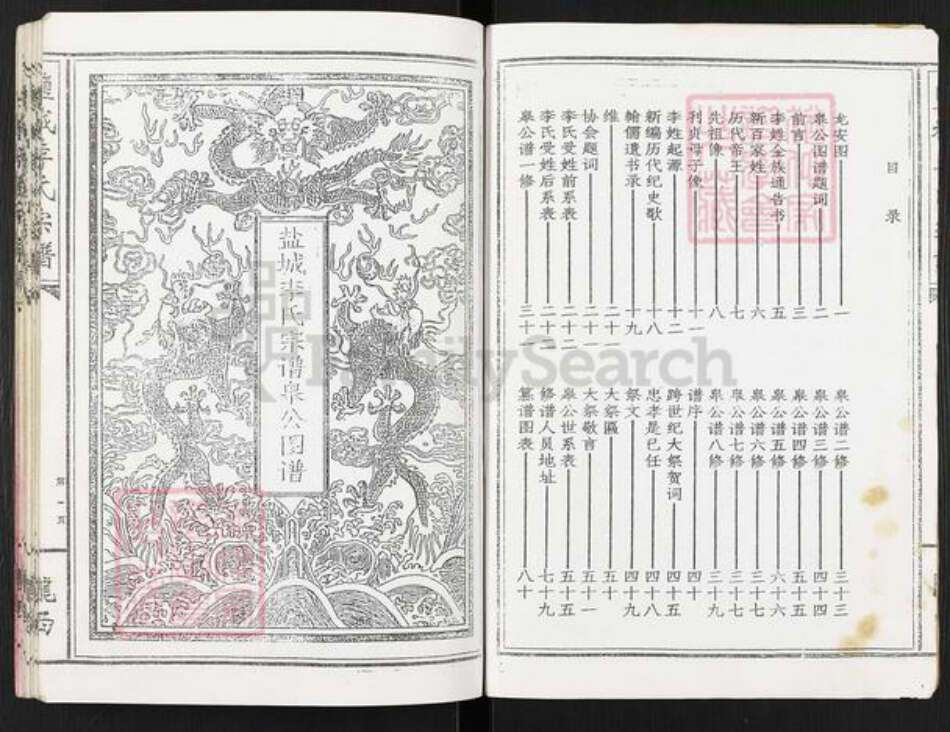 目录
龙安图 一
皋公图谱题词 二
前言 三
李姓全族通告书 五
新百家姓 六
历代帝王 七
先祖像 八
利贞母子像 十一
李姓起源 十二
新编历代纪史歌 十八
翰儒遗书录 十九
维 二十一
协会题词 二十一
李氏受姓前系表 二十二
李氏受姓后系表 二十三
皋公谱一修 三十一
皋公谱二修 三十三
皋公谱三修 四十四
皋公谱四修 五十五
皋公谱五修 六十六
皋公谱六修 三十七
皋公谱七修 三十七
皋公谱八修 三十九
谱序 四十
跨世纪大祭贺词 四十五
忠孝是已任 四十八
祭文 四十九
大祭匾 五十
大祭敬言 五十一
皋公世系表 五十五
修谱人员地址 七十九
墓谱图表 八十
盐城李氏宗谱皋公图谱
盐城李氏宗谱
第一页
龍西
FamilySearch